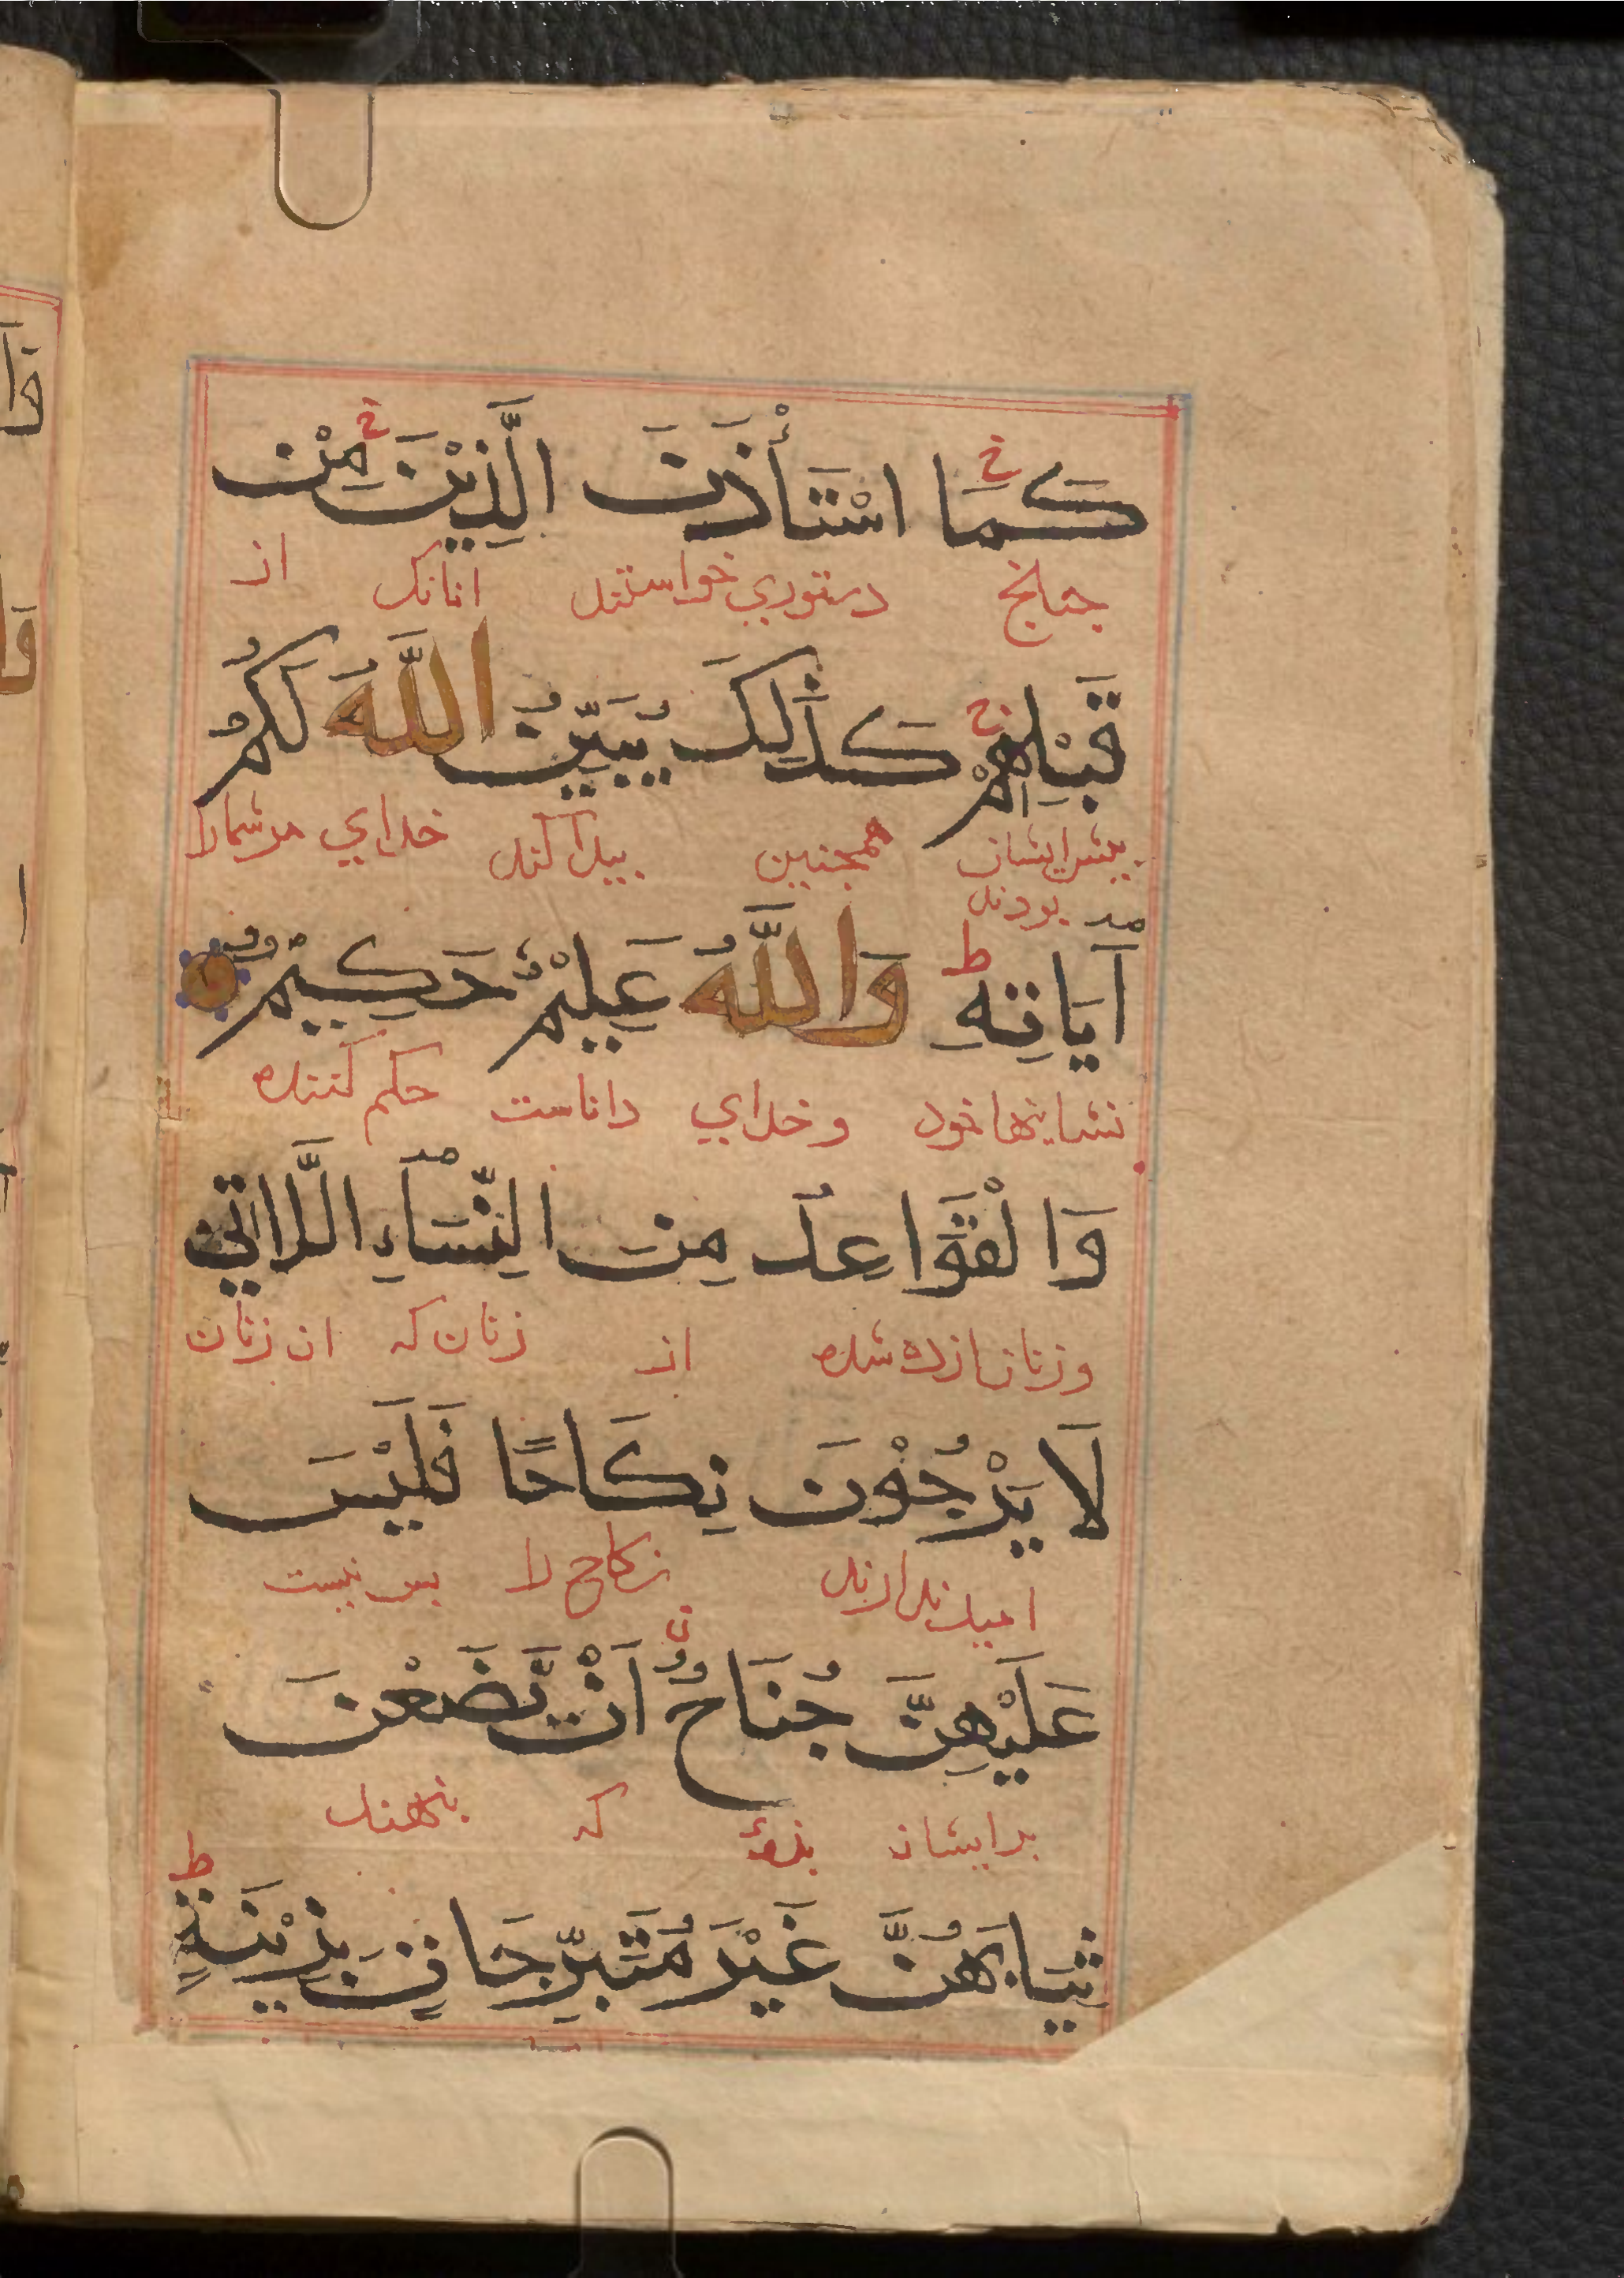 كَمَا اسْتَأْذَنَ الَّذِيْنَ مِنْ
چنانچ دستوري خواستند آنانک از
قَبْلِهِمْ كَذٰلِكَ يُبَيِّنُ اللّٰهُ لَكُمْ
پیش ایشان همچنین پیدا کند خدای مر شما را
بودند
آيَاتِهِ ط وَاللّٰهُ عَلِيْمٌ حَكِيْمٌ
نشاینها خود و خدای داناست حکم کننده
وَالْقَوَاعِدُ مِنَ النِّسَآءِ اللَّاتِيْ
و زنان ازده شده از زنان که ان زنان
لَا يَرْجُوْنَ نِكَاحًا فَلَيْسَ
امید ندارند نکاح را پس نیست
عَلَيْهِنَّ جُنَاحٌ اَنْ يَّضَعْنَ
بر ایشان بزهٔ که بنهند
ثِيَابَهُنَّ غَيْرَ مُتَبَرِّجَاتٍ بِزِيْنَةٍ ط